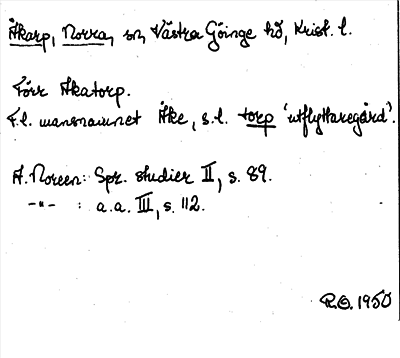 Åkarp, Norra, sn, Västra Göinge hd, Krist. l.
Förr Åkatorp.
F.l. mansnamnet Åke, s.l. torp 'utflyttaregård'.
A. Noreen: Spr. studier II, s. 89.
-"- : a.a. III, s. 112.
R.O. 1950